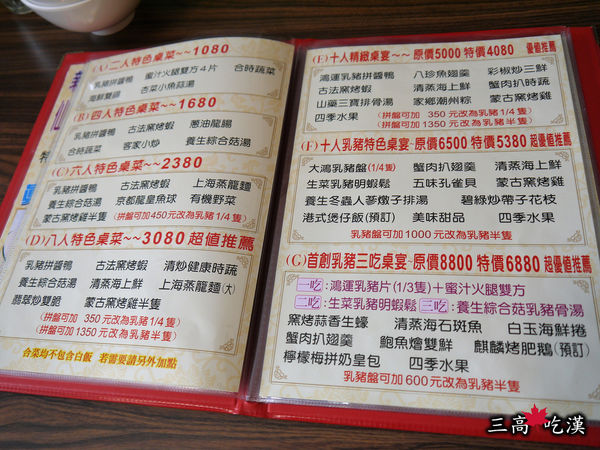 (A)二人特色桌菜~~1080
乳豬拼醬鴨 蜜汁火腿雙方4片 合時蔬菜
海鮮雙頭 杏菜小魚蒜湯
(B)四人特色桌菜~1680
乳豬拼醬鴨 古法窯烤蝦 蔥油龍腸
合時蔬菜 客家小炒 養生綜合菇湯
(C)六人特色桌菜~2380
乳豬拼醬鴨 古法窯烤蝦 上海蒸龍麵
養生綜合菇湯 京都龍皇魚球 有機野菜
蒙古窯烤雞半隻 (拼盤可加450元改為乳豬1/4隻)
(D)八人特色桌菜~~3080 超值推薦
乳豬拼醬鴨 古法窯烤蝦 清炒健康時蔬
養生綜合菇湯 清蒸海上鮮 上海蒸龍麵(大)
翡翠炒雙脆 蒙古窯烤雞半隻
(拼盤可加 350元改為乳豬1/4隻)
(拼盤可加 1350元改為乳豬半隻)
合菜均不包含白飯 若需要請另外加點
(E)十人精緻桌宴~~原價5000 特價4080 優值推薦
鴻運乳豬拼醬鴨 八珍魚翅羹 彩椒炒三鮮
古法窯烤蝦 清蒸海上鮮 蟹肉扒時蔬
山藥三寶排骨湯 家鄉潮州粽 蒙古窯烤雞
四季水果 (拼盤可加 350元改為乳豬1/4隻)
(拼盤可加 1350元改為乳豬半隻)
(F)十人乳豬特色桌宴~原價6500 特價5380 超優值推薦
大鴻乳豬盤(1/4隻) 蟹肉扒翅羹 清蒸海上鮮
生菜乳豬明蝦鬆 五味孔雀貝 蒙古窯烤雞
養生冬蟲人參燉子排湯 碧綠炒帶子花枝
港式煲仔飯(預訂) 美味甜品 四季水果
乳豬盤可加1000元改為乳豬半隻
(G)首創乳豬三吃桌宴~原價8800 特價6880 超優值推薦
一吃:鴻運乳豬片(1/3隻)+蜜汁火腿雙方
二吃:生菜乳豬明蝦鬆 三吃:養生綜合菇乳豬骨湯
窯烤蒜香生蠔 清蒸海石斑魚 白玉海鮮捲
蟹肉扒翅羹 鮑魚燴雙鮮 麒麟烤肥鵝(預訂)
檸檬梅拼奶皇包 四季水果
乳豬盤可加600元改為乳豬半隻
三高 吃漢